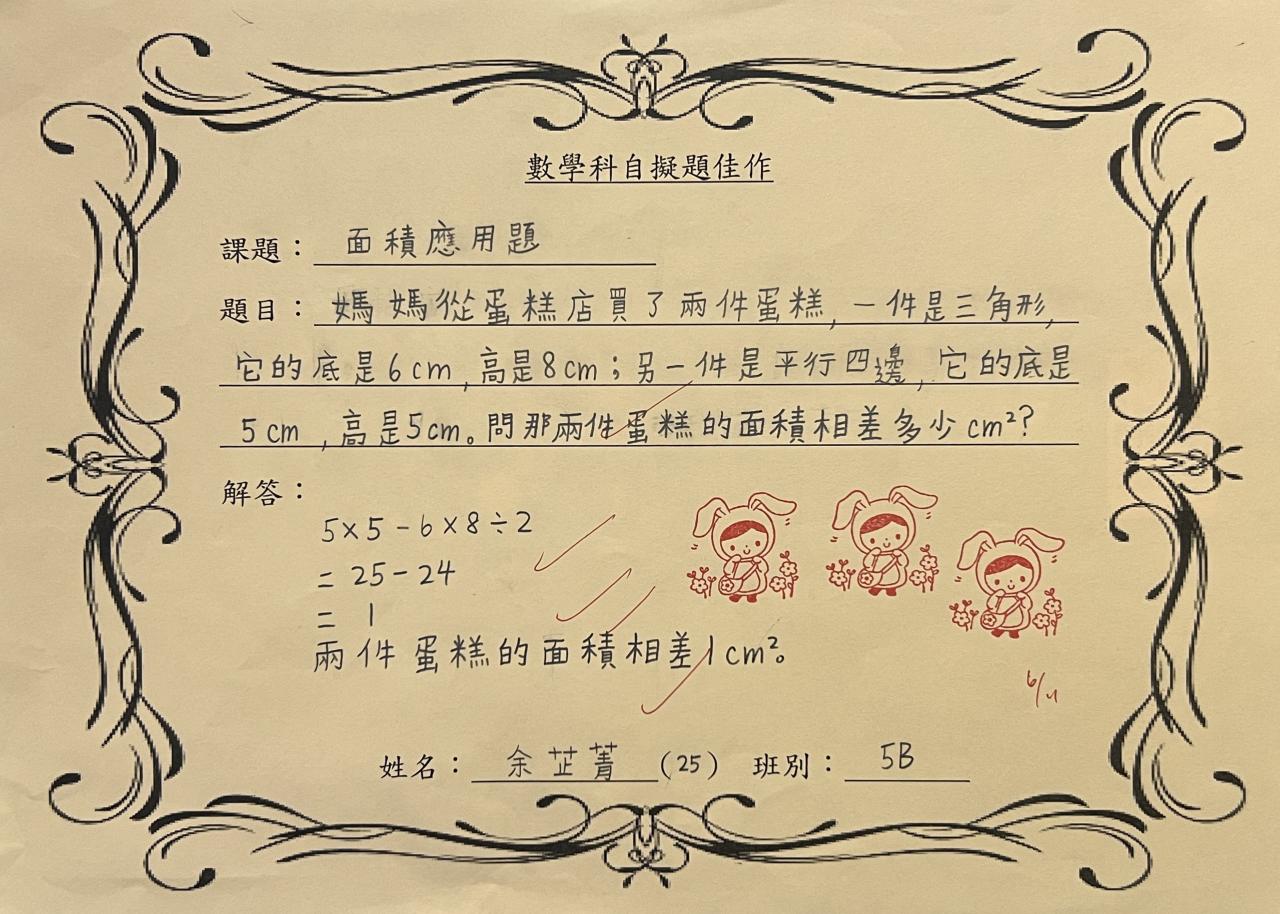 數學科自擬題佳作
課題：面積應用題
題目：媽媽從蛋糕店買了兩件蛋糕,一件是三角形,
它的底是6cm,高是8cm；另一件是平行四邊,它的底是
5cm,高是5cm。問那兩件蛋糕的面積相差多少cm²?
解答：
5×5-6×8÷2
=25-24
=1
兩件蛋糕的面積相差1cm²。
6/11
姓名：余芷菁(25) 班別：5B